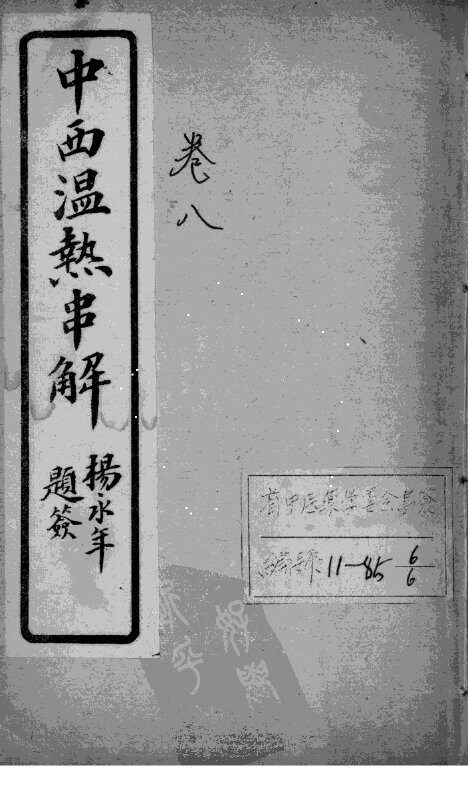 中西温熱串解
楊永年
題簽
卷八
編號 11-85 6/6